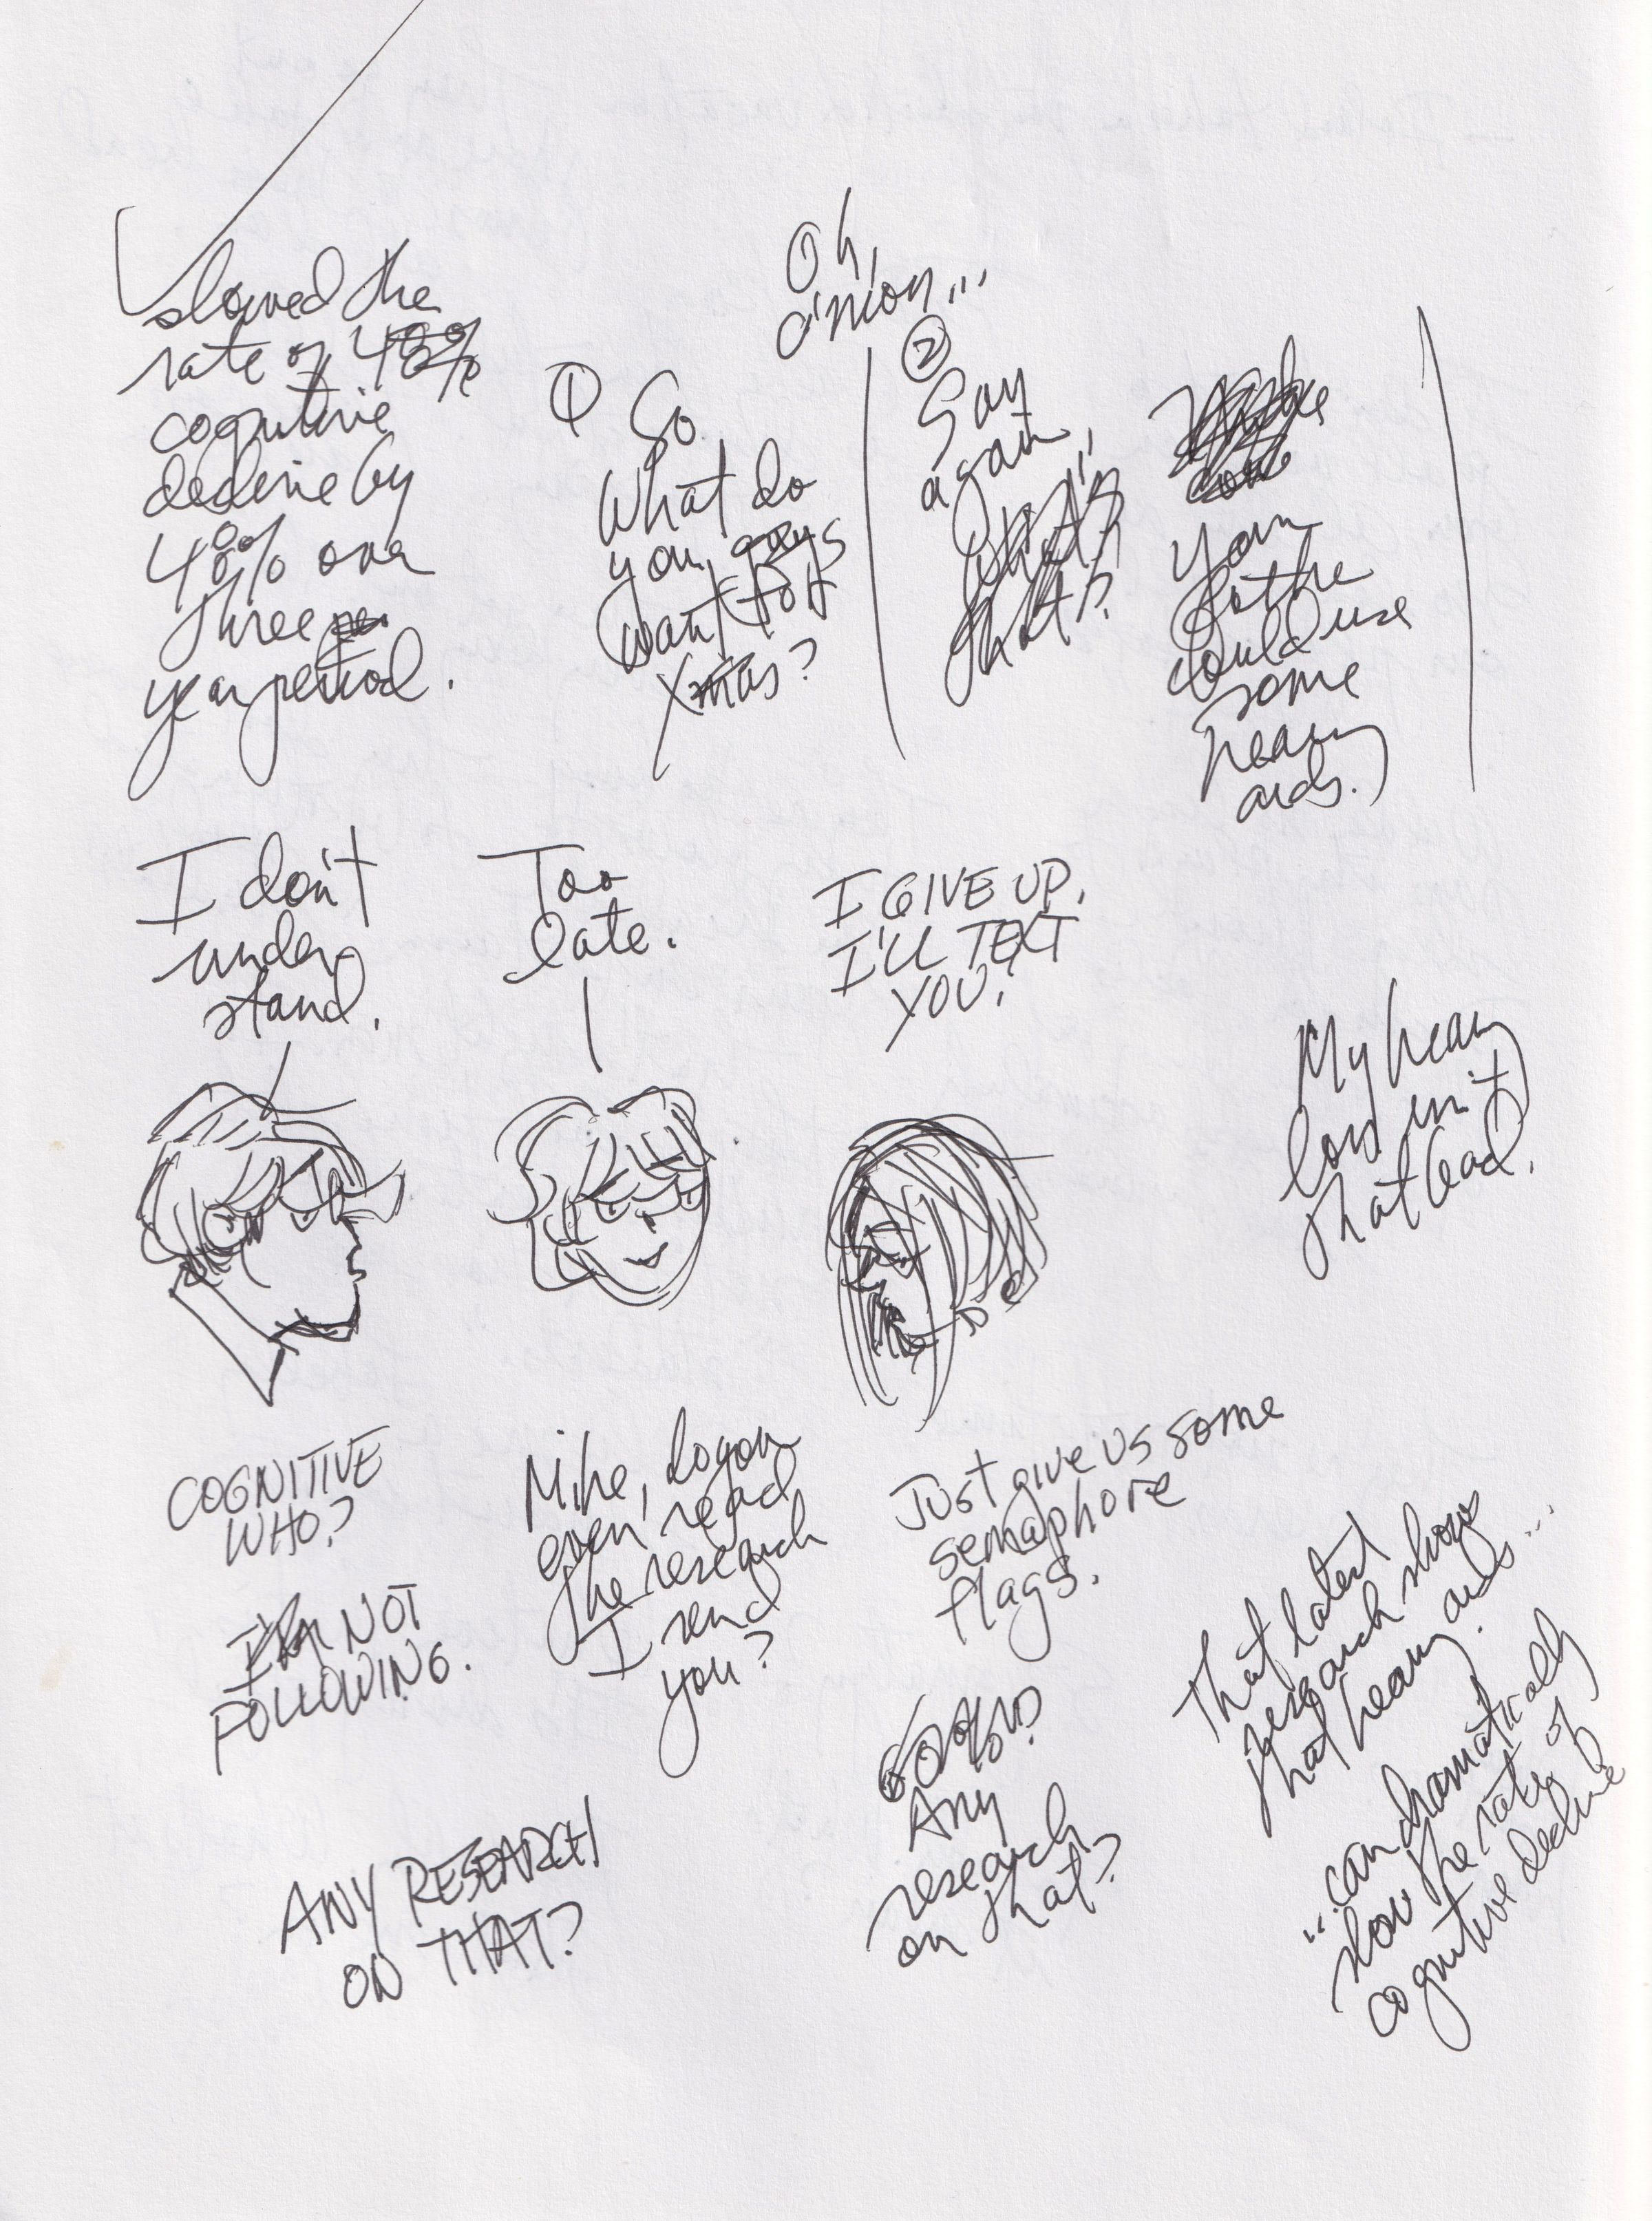 slowed the
rate of 48%
cognitive
decline by
48% over
three
year period.
Oh,
c'mon...
① So
What do
you guys
want for
Xmas?
②
Say
again,
What's
that?
You
both
could use
some
hearing
aids.
I don't
under
stand.
Too
late.
I GIVE UP.
I'LL TEXT
YOU.
My hearing
loss isn't
that bad.
COGNITIVE
WHO?
I'M NOT
FOLLOWING.
Mike, do you
even read
the research
I send
you?
Just give us some
semaphore
flags.
Any
research
on that?
ANY RESEARCH
ON THAT?
That latest
research shows
that hearing aids...
...can dramatically
slow the rate of
cognitive decline